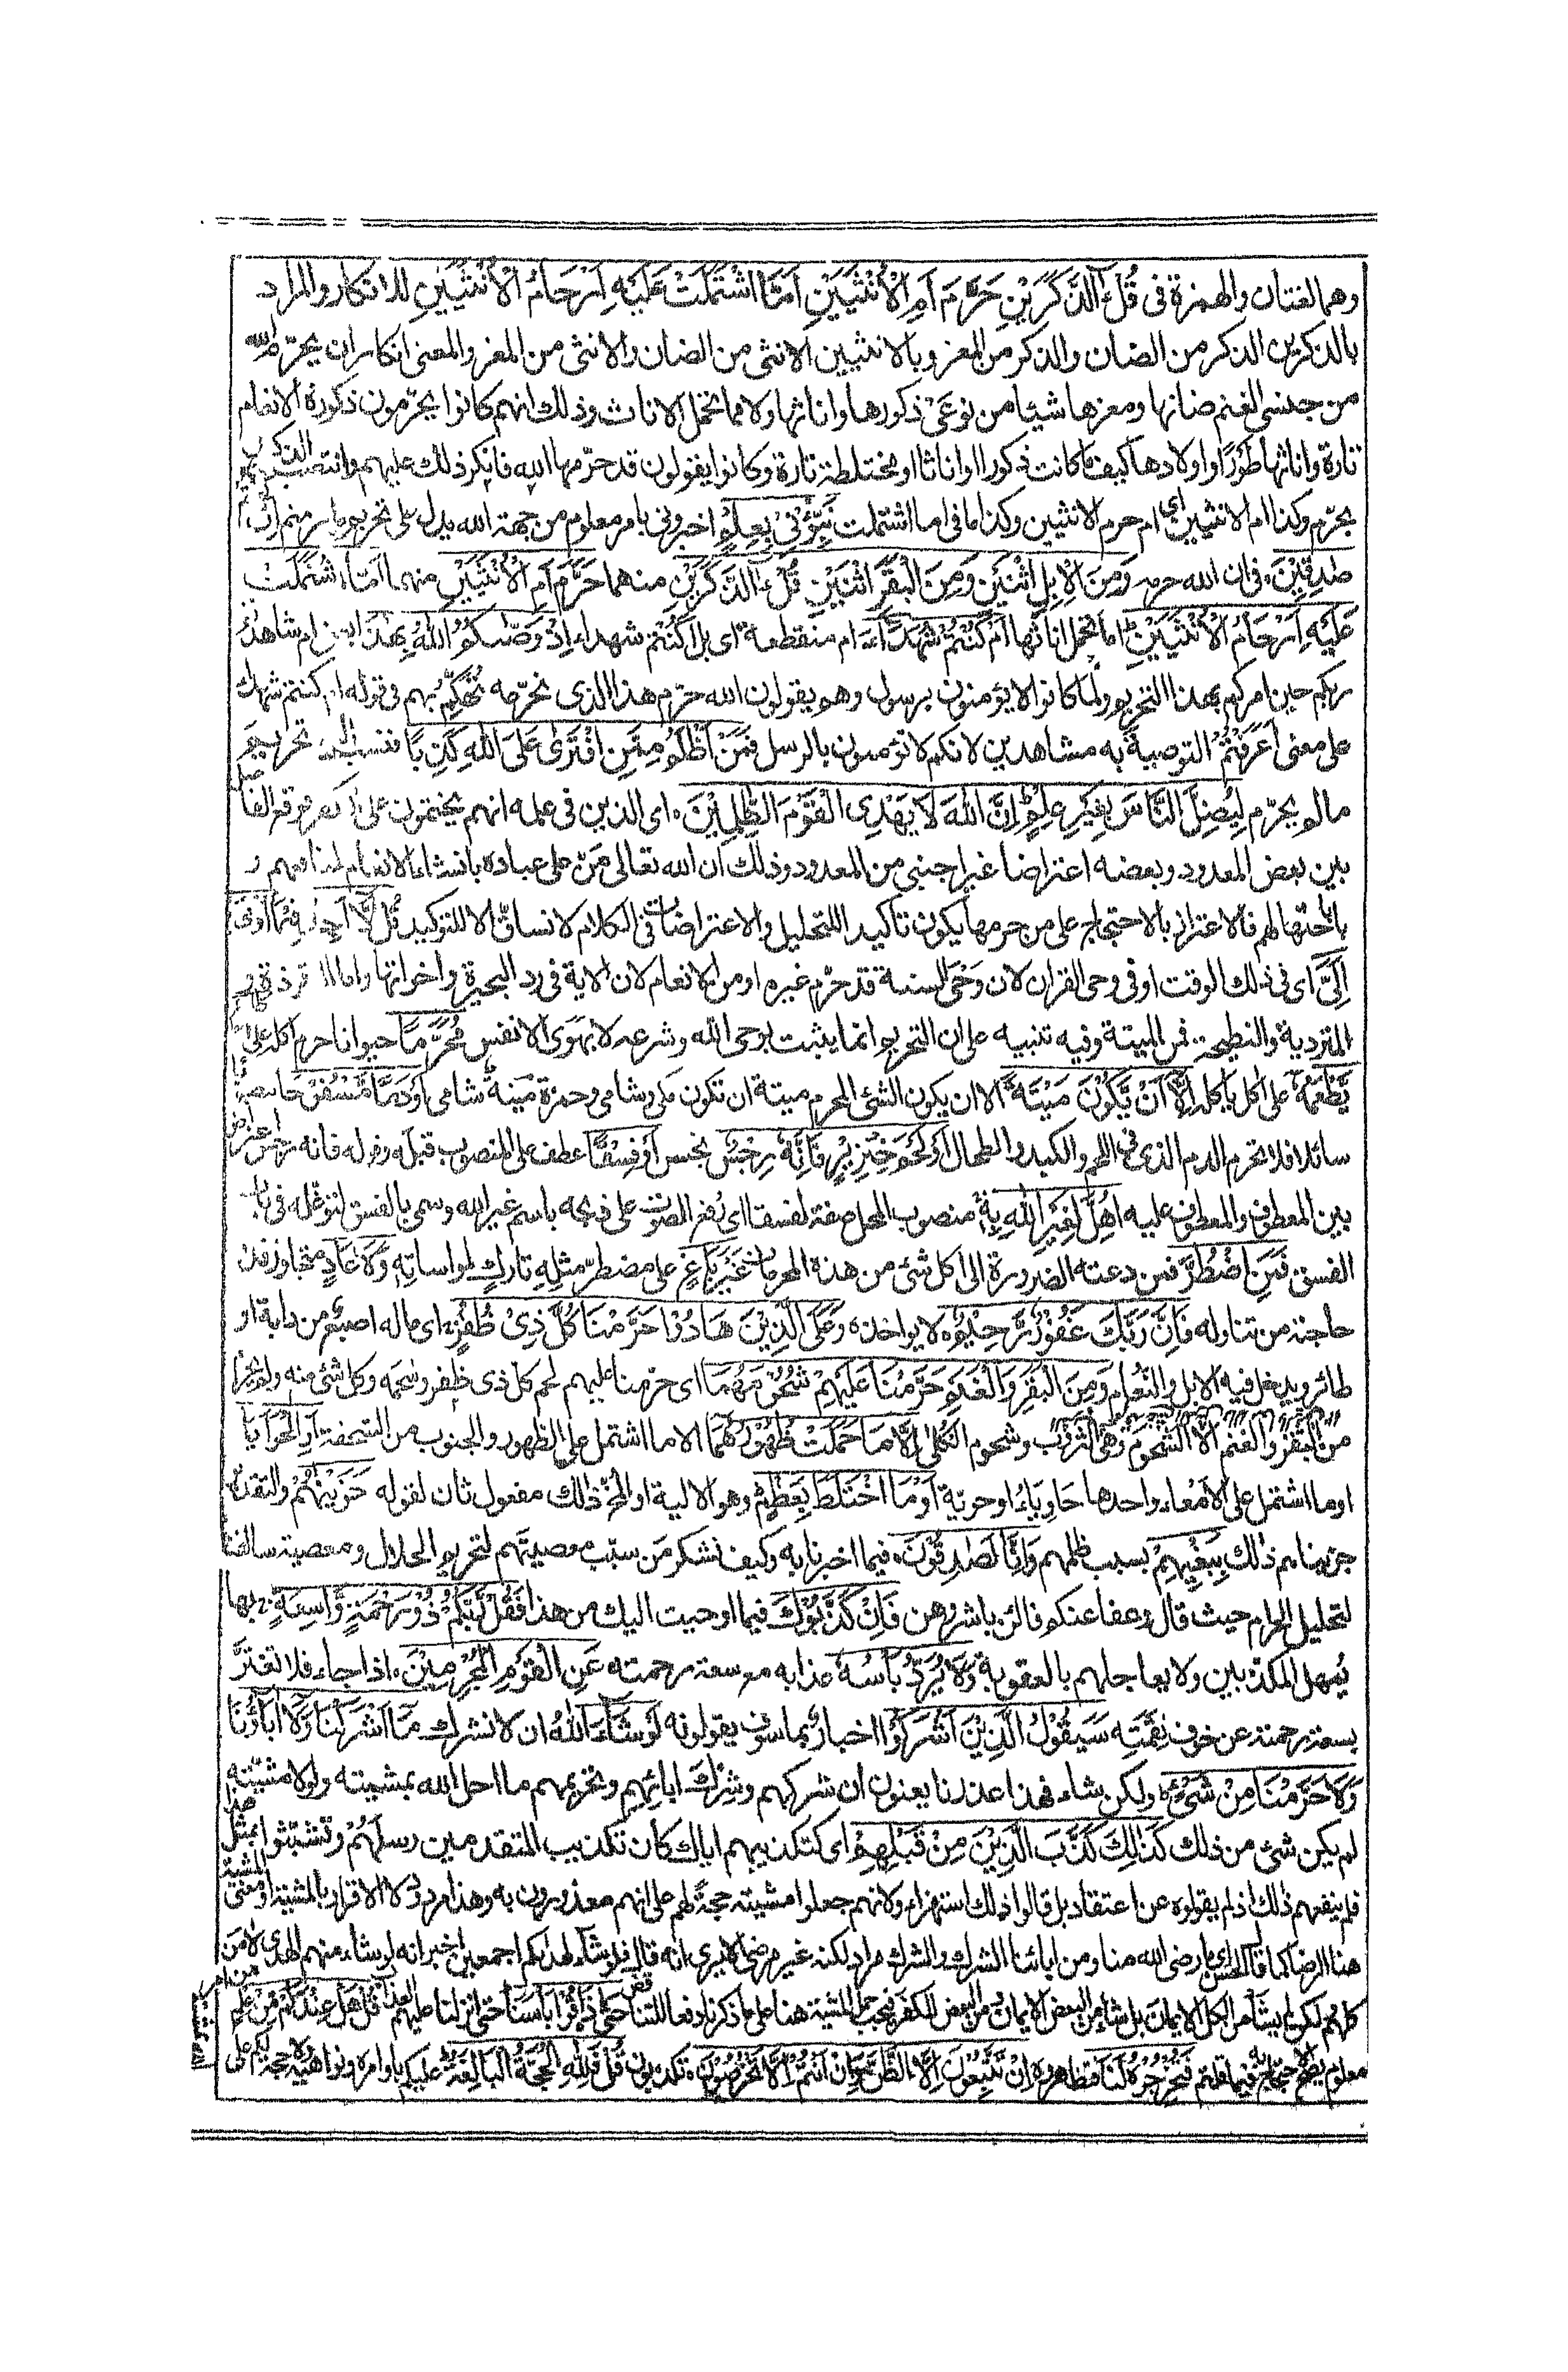 وهما لغتان والهمزة فى قُلْ ءٰٓالذَّكَرَيْنِ حَرَّمَ اَمِ الْاُنْثَيَيْنِ اَمَّا اشْتَمَلَتْ عَلَيْهِ اَرْحَامُ الْاُنْثَيَيْنِ للانكار والمراد
بالذكرين الذكر من الضان والذكر من المعز وبالانثيين الانثى من الضان والانثى من المعز والمعنى انكار ان يحرّم الله
من جنسى الغنم ضانها ومعزها شيئا من نوعَىْ ذكورها واناثها ولا مما تحمل الاناث وذلك انهم كانوا يحرّمون ذكورة الانعام
تارة واناثها طَوْرًا واولادها كيف ما كانت ذكورا او اناثا او مختلطة تارة وكانوا يقولون قد حرّمها الله فانكر ذلك عليهم وانتصب الذكرين
بحرّم وكذا ام الانثيين اى ام حرم الانثيين وكذا ما فى اما اشتملت نَبِّؤُنِىْ بِعِلْمٍ اخبرونى بامر معلوم من جهة الله يدل على تحريم ما حرمتم اِنْ كُنْتُمْ
صٰدِقِيْنَ ۙ فى ان الله حرمه وَمِنَ الْاِبِلِ اثْنَيْنِ وَمِنَ الْبَقَرِ اثْنَيْنِ قُلْ ءٰٓالذَّكَرَيْنِ منهما حَرَّمَ اَمِ الْاُنْثَيَيْنِ منهما اَمَّا اشْتَمَلَتْ
عَلَيْهِ اَرْحَامُ الْاُنْثَيَيْنِ ؕ اما تحمل اناثها اَمْ كُنْتُمْ شُهَدَآءَ ام منقطعة اى بل اكنتم شهداء اِذْ وَصّٰىكُمُ اللّٰهُ بِهٰذَا يعنى ام شاهدتم
ربكم حين امركم بهذا التحريم ولما كانوا لا يؤمنون برسول وهم يقولون الله حرّم هذا الذى نحرّمه تُهُكِّمَ بهم فى قوله ام كنتم شهداء
على معنى اَعَرَفْتُمُ التوصيةَ به مشاهدين لانكم لا تؤمنون بالرسل فَمَنْ اَظْلَمُ مِمَّنِ افْتَرٰى عَلَى اللّٰهِ كَذِبًا فنسب اليه تحريم
مالم يحرّم لِيُضِلَّ النَّاسَ بِغَيْرِ عِلْمٍ ؕ اِنَّ اللّٰهَ لَا يَهْدِى الْقَوْمَ الظّٰلِمِيْنَ ۙ اى الذين فى علمه انهم يختمون على الكفر ووقع الفاصل
بين بعض المعدود وبعضه اعتراضا غير اجنبى من المعدود وذلك ان الله تعالى مَنَّ على عباده بانشاء الانعام لمنافعهم و
باباحتها لهم فالاعتراض بالاحتجاج على من حرمها يكون تاكيدا للتحليل والاعتراضات فى الكلام لا تساق الا للتوكيد قُلْ لَّآ اَجِدُ فِىْ مَآ اُوْحِىَ
اِلَىَّ اى فى ذلك الوقت او فى وحى القران لان وَحْىَ السنة قد حرّم غيره او من الانعام لان الاية فى رد البحيرة واخواتها واما الموقوذة و
المتردية والنطيحة فمن الميتة وفيه تنبيه على ان التحريم انما يثبت بوحى الله وشرعه لا بهَوَى الانفس مُحَرَّمًا حيوانا حرم اكله عَلٰى طَاعِمٍ
يَّطْعَمُهٗٓ على اكل ياكله اِلَّآ اَنْ يَّكُوْنَ مَيْتَةً الا ان يكون الشئ المحرم ميتة ان تكون مكى وشامى وحمزة مَيْتَةٌ شامى اَوْ دَمًا مَّسْفُوْحًا مصبوبا
سائلا فلا يحرم الدم الذى فى اللحم والكبد والطحال اَوْ لَحْمَ خِنْزِيْرٍ فَاِنَّهٗ رِجْسٌ نجس اَوْ فِسْقًا عطف على المنصوب قبله وقوله فانه رجس اعتراض
بين المعطوف والمعطوف عليه اُهِلَّ لِغَيْرِ اللّٰهِ بِهٖ ۚ منصوب المحل صفة لفسقا اى رُفع الصوت على ذبحه باسم غير الله وسمى بالفسق لتوغّله فى باب
الفسق فَمَنِ اضْطُرَّ فمن دعته الضرورة الى اكل شئ من هذه المحرمات غَيْرَ بَاغٍ على مضطرّ مثلِهِ تاركٍ لمواساتِهِ وَّلَا عَادٍ متجاوز قدر
حاجته من تناوله فَاِنَّ رَبَّكَ غَفُوْرٌ رَّحِيْمٌ ۝ لا يواخذه وَعَلَى الَّذِيْنَ هَادُوْا حَرَّمْنَا كُلَّ ذِىْ ظُفُرٍ ۚ اى ما له اصبع من دابة او
طائر ويدخل فيه الابل والنَّعام وَمِنَ الْبَقَرِ وَالْغَنَمِ حَرَّمْنَا عَلَيْهِمْ شُحُوْمَهُمَآ اى حرّمنا عليهم لحم كل ذى ظفر وشحمه وكل شئ منه ولم يحرم
من البقر والغنم الا الشحوم وهى الثروب وشحوم الكُلٰى اِلَّا مَا حَمَلَتْ ظُهُوْرُهُمَآ الا ما اشتمل على الظهور والجنوب من السَّحْفة اَوِ الْحَوَايَآ
او ما اشتمل على الامعاء واحدها حَاوِيَاءُ او حوية اَوْ مَا اخْتَلَطَ بِعَظْمٍ ؕ وهو الالية او المُخّ ذٰلك مفعول ثان لقوله جَزَيْنٰهُمْ والتقدير
جزيناهم ذٰلك بِبَغْيِهِمْ بسبب ظلمهم وَاِنَّا لَصٰدِقُوْنَ ۝ فيما اخبرنا به وكيف نشكر مَن سبّب معصيتَهم لتحريم الحلال ومعصية سالفنا
لتحليل الحرام حيث قال وعفا عنكم فالئن باشروهن فَاِنْ كَذَّبُوْكَ فيما اوحيت اليك من هذا فَقُلْ رَّبُّكُمْ ذُوْ رَحْمَةٍ وَّاسِعَةٍ ۚ بها
يُمهل المكذبين ولا يعاجلهم بالعقوبة وَلَا يُرَدُّ بَاْسُهٗ عذابه مع سعة رحمته عَنِ الْقَوْمِ الْمُجْرِمِيْنَ ۝ اذا جاء فلا تغترَّ
بسعة رحمته عن خوف نِقْمَتِهٖ سَيَقُوْلُ الَّذِيْنَ اَشْرَكُوْا اخبارٌ بما سوف يقولونه لَوْ شَآءَ اللّٰهُ ان لا نشرك مَآ اَشْرَكْنَا وَلَآ اٰبَآؤُنَا
وَلَا حَرَّمْنَا مِنْ شَىْءٍ ؕ ولكن شاء فهذا عذرنا يعنون ان شركهم وشِرْكَ ابائهم وتحريمهم ما احل الله بمشيته ولولا مشيّته
لم يكن شئ من ذلك كَذٰلِكَ كَذَّبَ الَّذِيْنَ مِنْ قَبْلِهِمْ اى كتكذيبهم اياك كان تكذيب المتقدمين رسلَهُمْ وتشبّثوا بمثل هذا
فلم ينفعهم ذٰلك اذ لم يقولوه عن اعتقاد بل قالوا ذلك استهزاء ولانهم جعلوا مشيته حجةً لهم على انهم معذورون به وهذا مردود لا الاقرار بالمشية او معنى المشية
هنا الرضا كما قال الحسن اى ما رضى الله منا ومن ابائنا الشرك والشرك مراد لكنه غير مرضى الا يرى انه قال فلو شاء لهداكم اجمعين اخبر انه لو شاء منهم الهدى لآمن
كلهم لكن لم يشأ من الكل الايمان بل شاء من البعض الايمان ومن البعض الكفر فيجب حمل المشية هنا على ما ذكرنا دفعا للتناقض حَتّٰى ذَاقُوْا بَاْسَنَا ؕ حتى انزلنا عليهم العذاب قُلْ هَلْ عِنْدَكُمْ مِّنْ عِلْمٍ من امر
معلوم يصح الاحتجاج به فيما قلتم فَتُخْرِجُوْهُ لَنَا فتظهروه اِنْ تَتَّبِعُوْنَ اِلَّا الظَّنَّ وَاِنْ اَنْتُمْ اِلَّا تَخْرُصُوْنَ ۝ تكذبون قُلْ فَلِلّٰهِ الْحُجَّةُ الْبَالِغَةُ ۚ عليكم باوامره ونواهيه ولا حجة لكم على